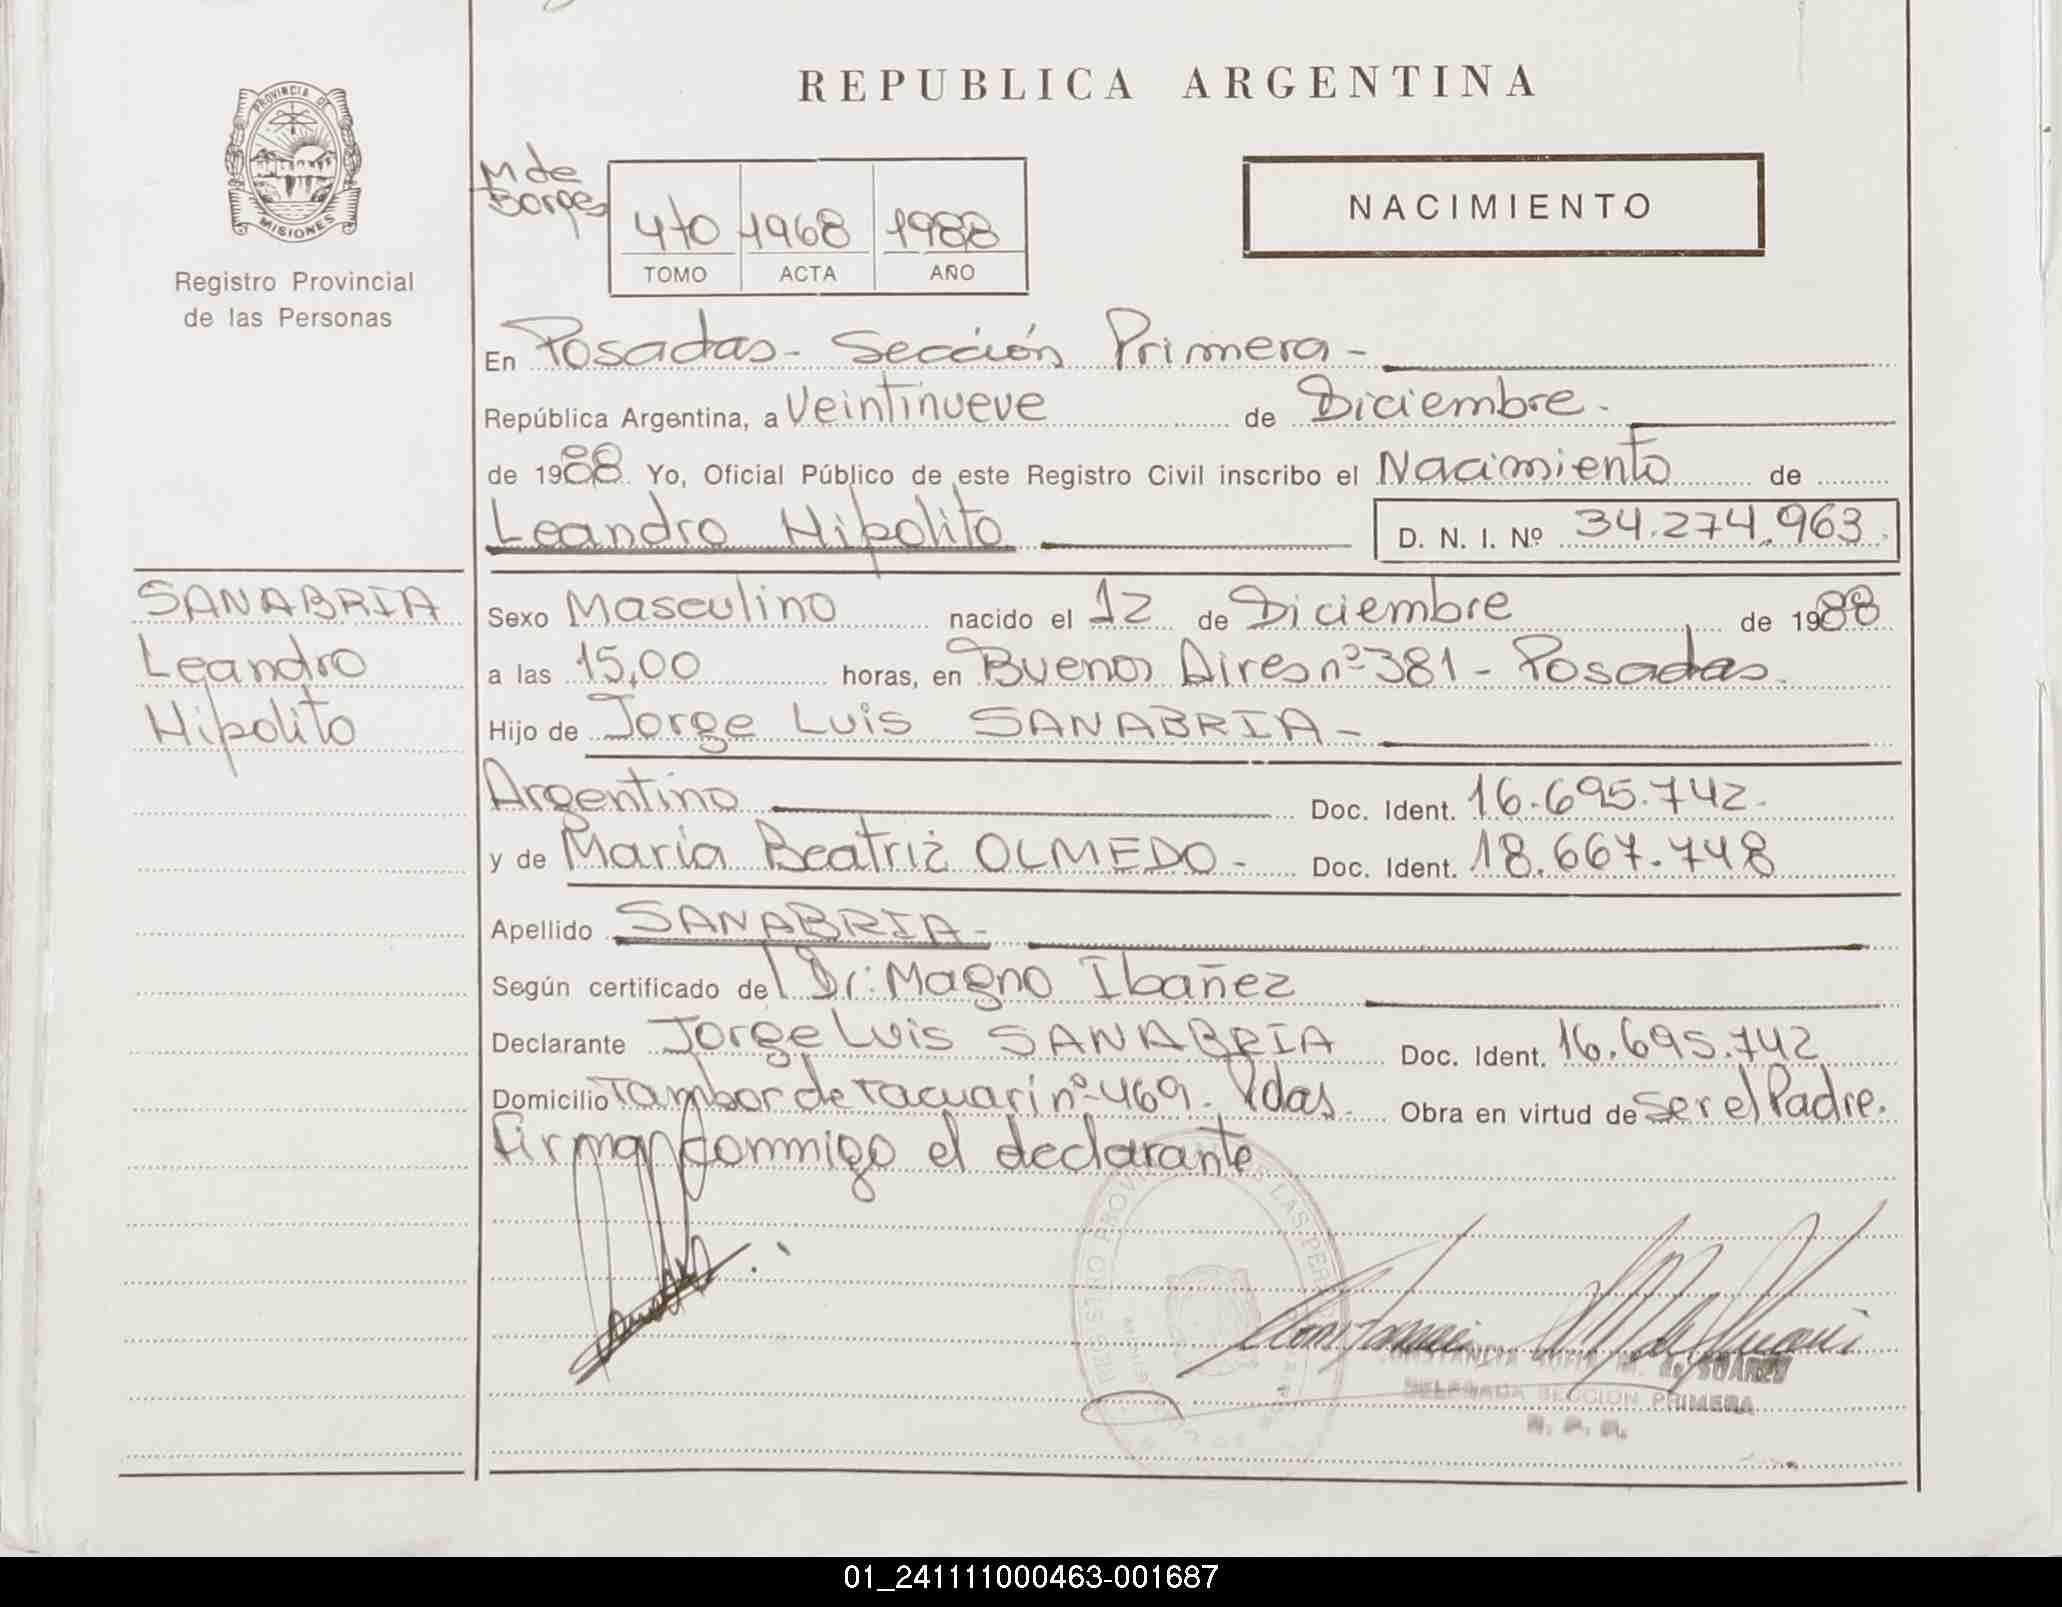 REPUBLICA ARGENTINA
PROVINCIA DE
MISIONES
Registro Provincial
de las Personas
M de
Borges
4to 1968 1988
TOMO ACTA AÑO
NACIMIENTO
En Posadas - Sección Primera -
República Argentina, a Veintinueve de Diciembre.
de 1988. Yo, Oficial Público de este Registro Civil inscribo el Nacimiento de
Leandro Hipolito D. N. I. Nº 34.274.963
SANABRIA
Leandro
Hipolito
Sexo Masculino nacido el 12 de Diciembre de 1988
a las 15,00 horas, en Buenos Aires nº 381 - Posadas.
Hijo de Jorge Luis SANABRIA -
Argentino Doc. Ident. 16.695.742.
y de María Beatriz OLMEDO - Doc. Ident. 18.667.748
Apellido SANABRIA -
Según certificado del Dr: Magno Ibañez
Declarante Jorge Luis SANABRIA Doc. Ident. 16.695.742
Domicilio Tambor de Tacuari nº 469. Pdas. Obra en virtud de ser el Padre.
Firman commigo el declarante
DELEGADA SECCION PRIMERA
R. P. P.
01_241111000463-001687